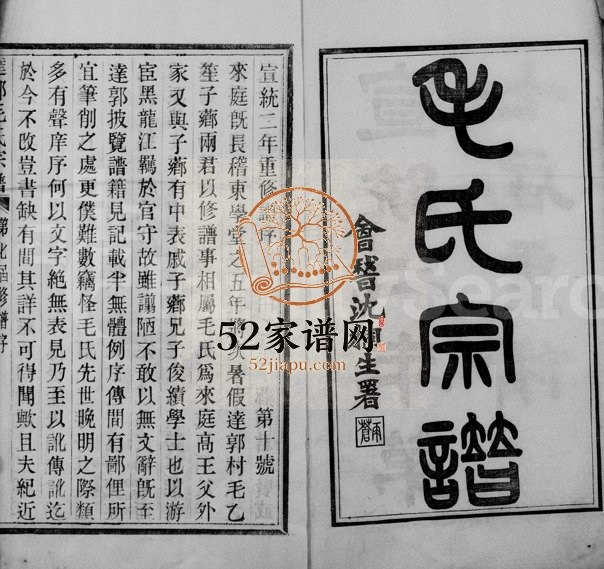 毛氏宗譜
會稽沈生署
宣統二年重修譜序 第十號
來庭旣長稽東學堂之五年暑假達郭村毛乙
笙子薌兩君以修譜事相屬毛氏爲來庭高王父外
家又與子薌有中表戚子薌兄子俊績學士也以游
宦黑龍江羈於官守故雖譾陋不敢以無文辭旣至
達郭披覽譜籍見記載半無體例序傳間有鄙俚所
宜筆削之處更僕難數竊怪毛氏先世晚明之際類
多有聲庠序何以文字絕無表見乃至以訛傳訛迄
於今不改豈書缺有間其詳不可得聞歟且夫紀近
達郭毛氏宗譜
52家谱网
52jiapu.com